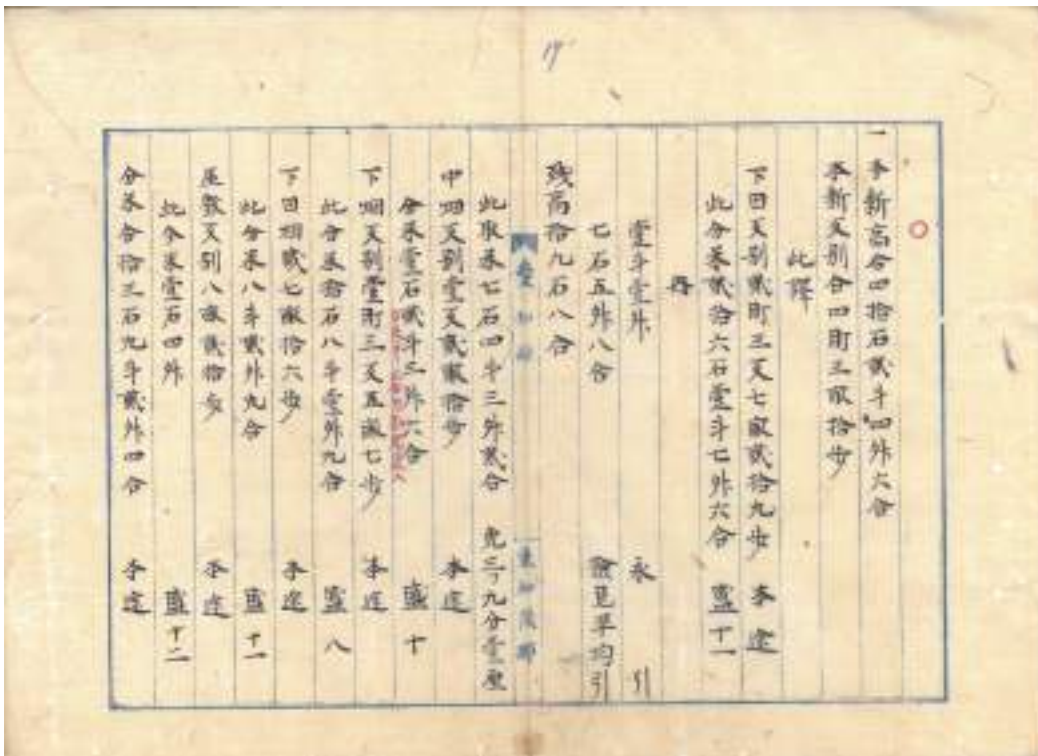 17
一本新高合四拾石貳斗四升六合
本新反別合四町三畝拾歩
此譯
下田反別貳町三反七畝貳拾九歩 本途
此分米貳拾六石壹斗七升六合 盛十一
内
壹斗壹升 永引
七石五升八合 檢見平均引
残高拾九石八合
此取米七石四斗三升貳合 免三ツ九分壹厘
中畑反別壹反貳畝拾歩 本途
分米壹石貳斗三升六合 盛十
下畑反別壹町三反五畝七歩 本途
此分米拾石八斗壹升九合 盛八
下田畑成七畝拾六歩 本途
此分米八斗貳升九合 盛十一
屋敷反別八畝貳拾歩 本途
此分米壹石四升 盛十二
分米合拾三石九斗貳升四合 本途